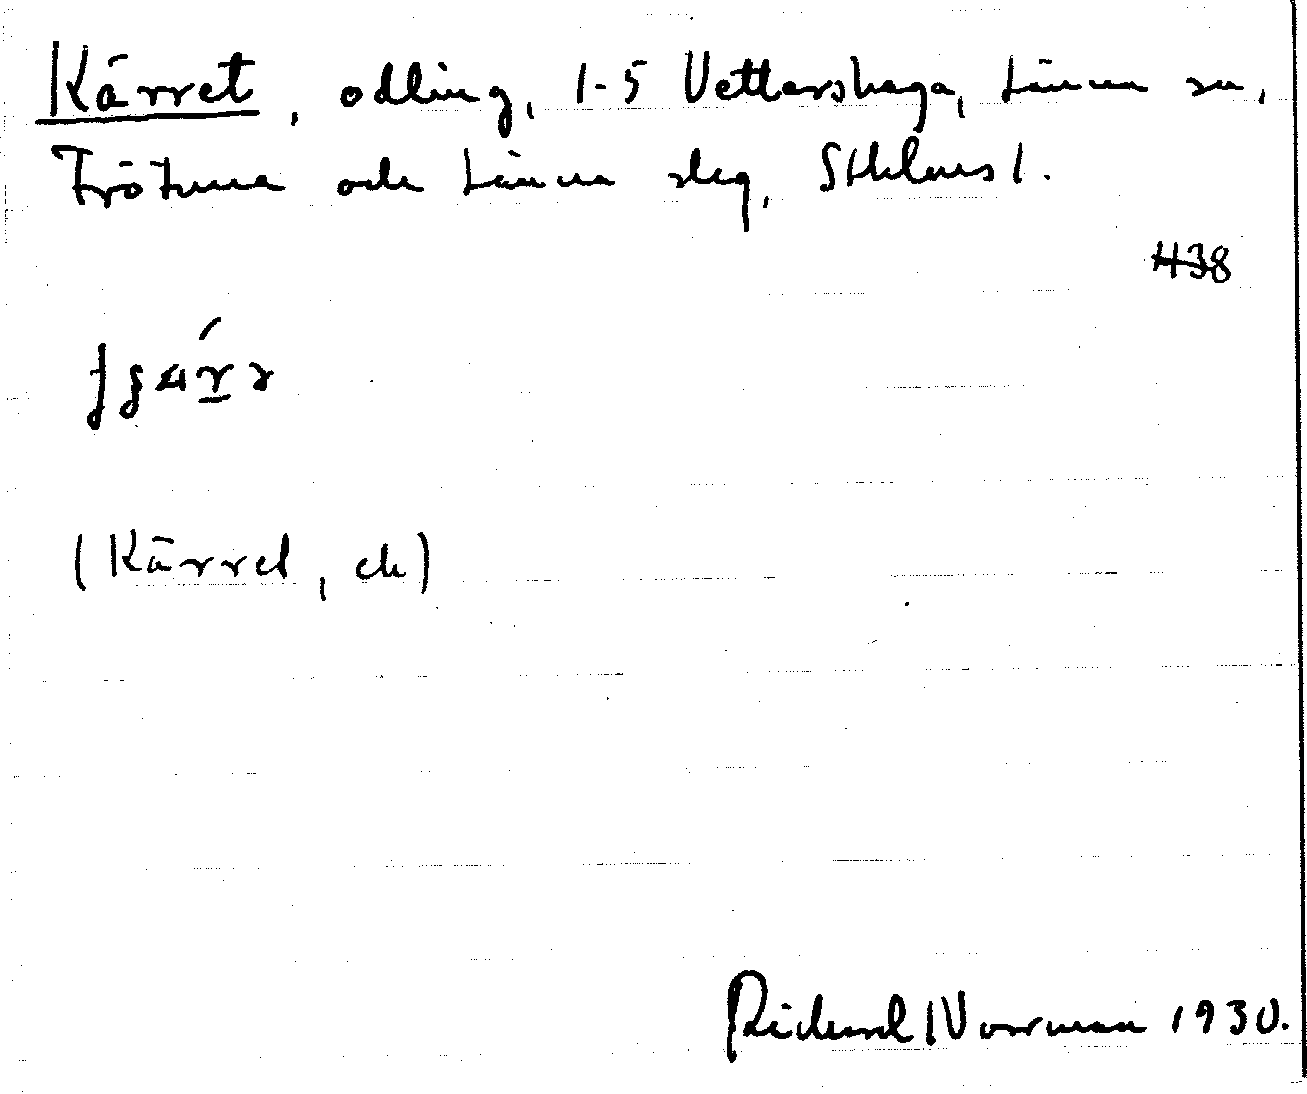 Kärret, odling, 1-5 Vettershaga, Länna sn,
Frötuna och Länna slag, Sthlms l.
438
(Kärret, ek)
Rickard Norrman 1930.